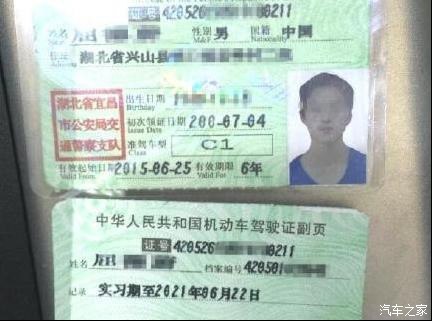 证号 420526 0211
姓名 周 性别 男 国籍 中国
Name M&F Nationality
住址 湖北省兴山县
湖北省宜昌
市公安局交
通警察支队
出生日期
Birthday
初次领证日期 200 -07-04
Issue Date
准驾车型 C1
Class
有效起始日期 2015-06-25 有效期限 6年
Valid From Valid For
中华人民共和国机动车驾驶证副页
证号 420526 0211
姓名 周 档案编号 420501
记录 实习期至2021年06月22日
汽车之家